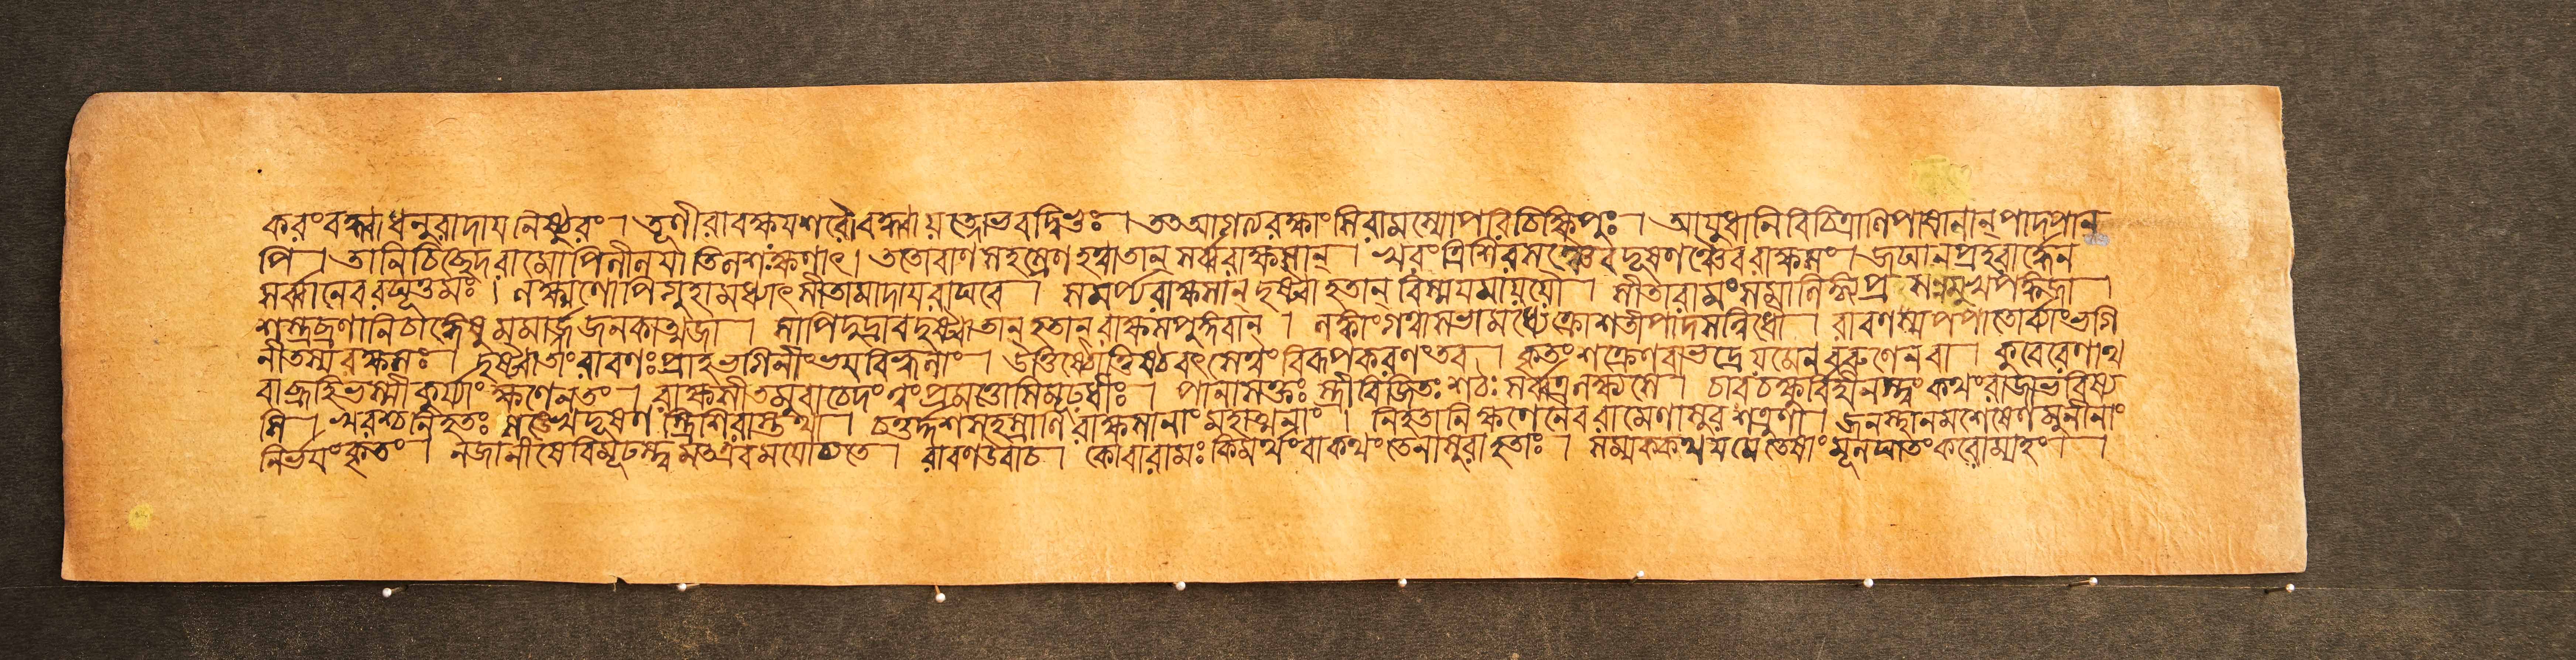 করংবদ্ধ্বাধনুরাদায়নিষ্ঠুরং । তূণীরাবক্ষয়শরৌবদ্ধ্বায়ত্তোভবদ্বিভুঃ । ততআগত্যরক্ষাংসিরামস্যোপরিচিক্ষিপুঃ । আয়ুধানিবিচিত্রাণিপাষাণান্পাদপান্
পি । তানিচিচ্ছেদরামোপিলীলয়াতিলশঃক্ষণাৎ । ততোবাণসহস্রেণহত্বাতান্সর্ব্বরাক্ষসান্ । খরংত্রিশিরসঞ্চৈবদূষণঞ্চৈবরাক্ষসং । জঘানপ্রহরার্দ্ধেন
সর্ব্বানেবরঘূত্তমঃ । লক্ষ্মণোপিগুহামধ্যাৎসীতামাদায়রাঘবে । সমর্প্যরাক্ষসান্দৃষ্ট্বাহতান্বিস্ময়মায়য়ৌ । সীতারামংসমালিঙ্গ্যপ্রসন্নমুখপঙ্কজা ।
শস্ত্রব্রণানিচাঙ্গেষুমমার্জ্জজনকাত্মজা । সাপিদুদ্রাবদৃষ্ট্বাতান্হতান্রাক্ষসপুঙ্গবান্ । লঙ্কাংগত্বাসভামধ্যেক্রোশন্তীপাদসন্নিধৌ । রাবণস্যপপাতোর্ব্যাংভগি
নীতস্যরক্ষসঃ । দৃষ্ট্বাতাংরাবণঃপ্রাহভগিনীংভয়বিহ্বলাং । উত্তিষ্ঠোত্তিষ্ঠবৎসেত্বংবিরূপকরণংতব । কৃতংশক্রেণবাভদ্রেয়মেনবরুণেনবা । কুবেরেণাথ
বাব্রূহিভস্মীকুর্য্যাংক্ষণেনতং । রাক্ষসীতমুবাচেদংত্বংপ্রমত্তোসিমূঢধীঃ । পানাসক্তঃস্ত্রীবিজিতঃশঠঃসর্ব্বত্রলক্ষ্যসে । চারচক্ষুর্বিহীনস্ত্বংকথংরাজাভবিষ্য
সি । খরশ্চনিহতঃসংখ্যেদূষণস্ত্রিশিরাস্তথা । চতুর্দ্দশসহস্রাণিরাক্ষসানাংমহাত্মনাং । নিহতানিক্ষণেনৈবরামেণাসুরশত্রুণা । জনস্থানমশেষেণমুনীনাং
নির্ভয়ংকৃতং । নজানীষেবিমূঢস্ত্বমতএবময়োচ্যতে । রাবণউবাচ । কোবারামঃকিমর্থংবাকথংতেনাসুরাহতাঃ । সম্যক্কথয়মেতেষাংমূলঘাতংকরোম্যহং ।